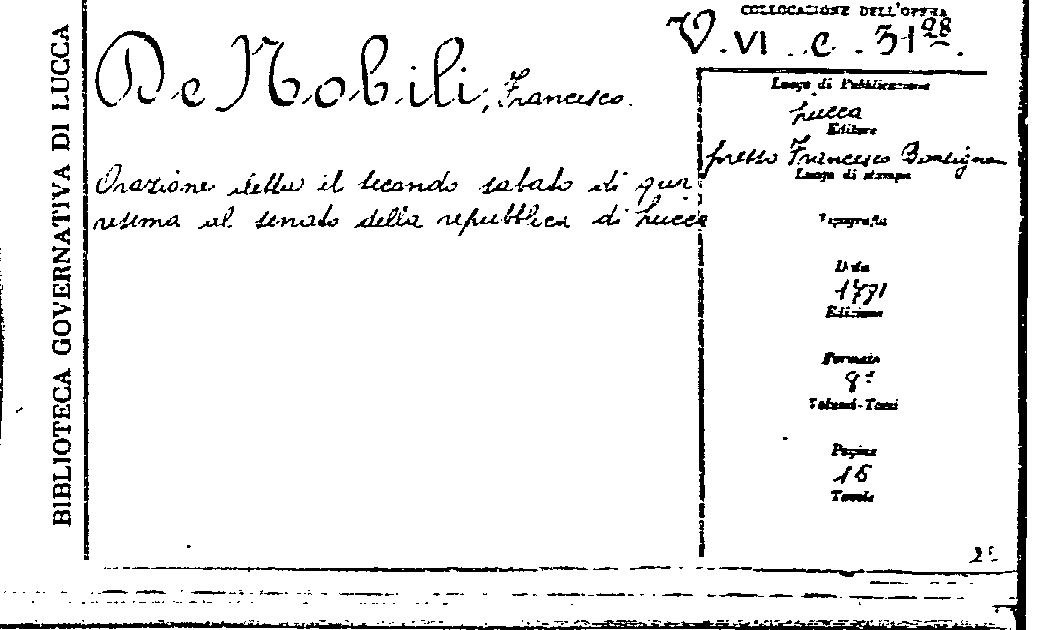 BIBLIOTECA GOVERNATIVA DI LUCCA
COLLOCAZIONE DELL'OPERA
V. VI. c. 31 28.
De Nobili, Francesco.
Orazione detta il secondo sabato di qua
resima al senato della repubblica di Lucca
Luogo di Pubblicazione
Lucca
Editore
presso Francesco
Luogo di stampa
Tipografia
Data
1771
Edizione
Formato
8º
Volumi-Tomi
Pagine
16
Tavole
2º